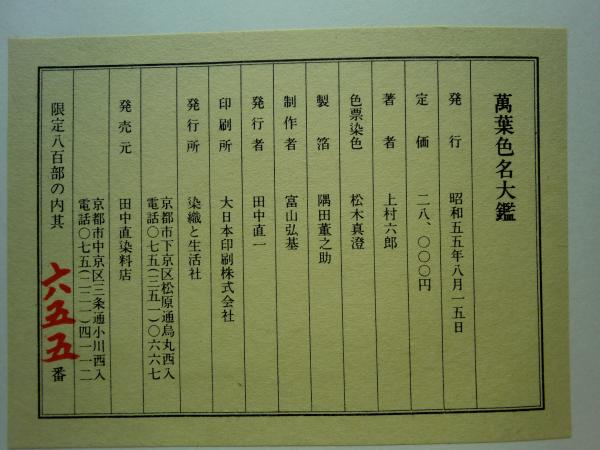 萬葉色名大鑑
発行 昭和五五年八月一五日
定価 二八、〇〇〇円
著者 上村六郎
色票染色 松木真澄
製箔 隅田董之助
制作者 富山弘基
発行者 田中直一
印刷所 大日本印刷株式会社
発行所 染織と生活社
京都市下京区松原通烏丸西入
電話〇七五(三五一)〇六六七
発売元 田中直染料店
京都市中京区三条通小川西入
電話〇七五(二二一)四一一二
限定八百部の内其 六五五 番